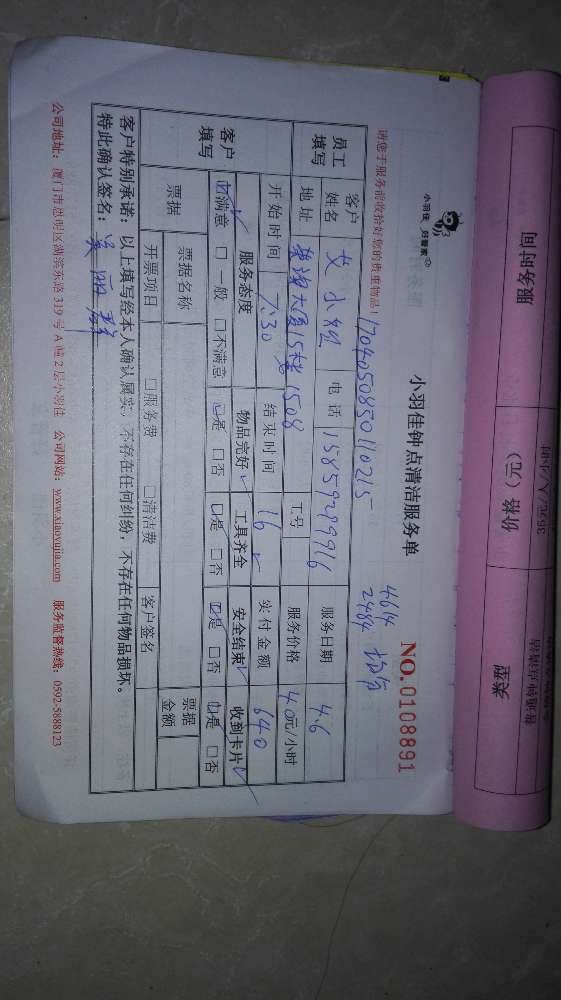 小羽佳 好管家
小羽佳钟点清洁服务单
NO.0108891
464
2484
请您于服务前收拾好您的贵重物品!
员工填写
客户姓名 女士 电话 15859299916 服务日期 4.6
地址 15楼1508 工号 服务价格 40元/小时
开始时间 7:30 结束时间 16 实付金额 640
客户填写
服务态度 物品完好 工具齐全 安全结束 收到卡片
☑满意 □一般 □不满意 ☑是 □否 ☑是 □否 ☑是 □否 ☑是 □否
票据 票据名称 票据金额
开票项目 □服务费 □清洁费 客户签名
客户特别承诺:以上填写经本人确认属实,不存在任何纠纷,不存在任何物品损坏。
特此确认签名:
公司地址:厦门市思明区湖滨东路319号A幢2层小羽佳 公司网站:www.xiaoyujia.com 服务监督热线:0592-5888123
服务时间
价格(元)
35元/人/小时
类型
普通钟点清洁